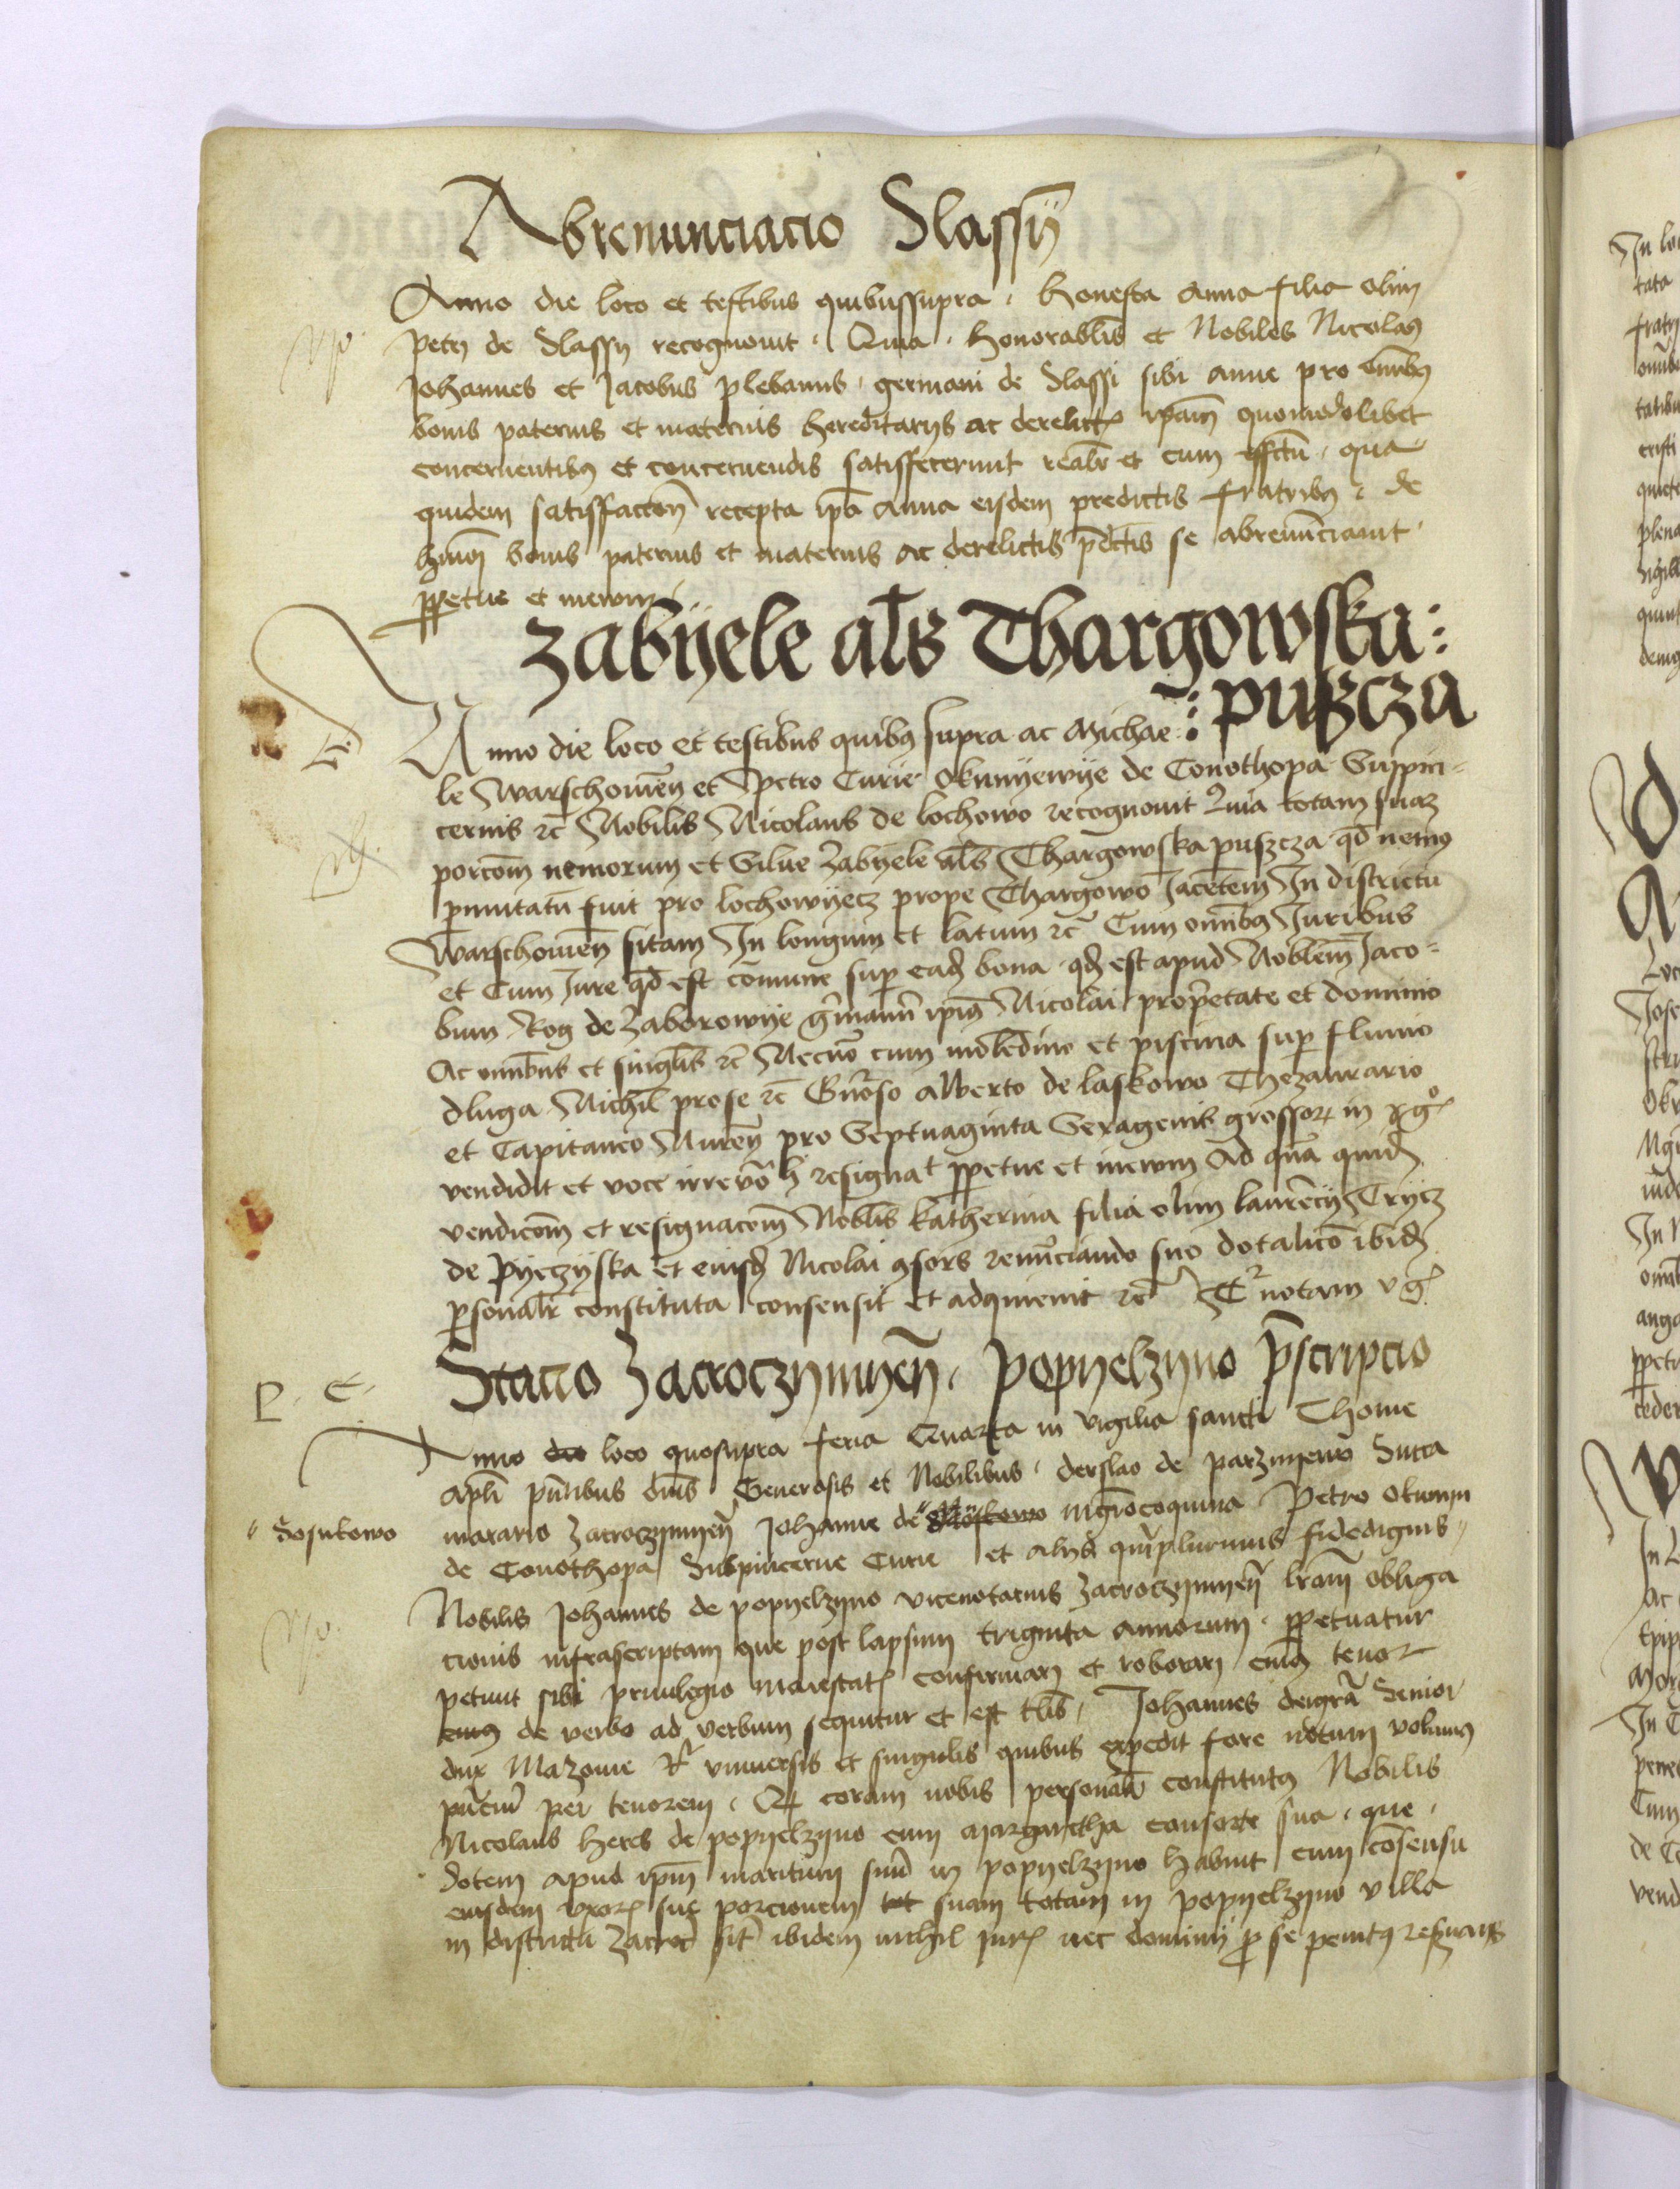 Abrenunciacio Slassy
Anno die loco et testibus quibussupra. Honesta Anna filia olim
Petrj de Slassy recognouit. Quia. Honorabilis et Nobiles Nicolaus
Johannes et Jacobus plebanus. germani de Slassi sibi Anne pro omnibus
bonis paternis et maternis hereditarijs ac derelictis ipsam quomodolibet
concernentibus et concernendis satisfecerunt realiter et cum effectu. qua
quidem satisfaccione recepta ipsa Anna eisdem predictis fratribus. de
huiusmodi bonis paternis et maternis ac derelictis predictis se abrenunciauit
perpetue et inewum.
Zabyele als Thargowska:
:puszcza
Anno die loco et testibus quibus supra ac Michae:
le Warschouien et Petro Curie Okunyewye de Conothopa Suppin=
cernis etc Nobilis Nicolaus de lochowo recognouit Quia totam suam
porcom nemorum et Silue Zabyele als Thargowska puszcza quod nemus
permutatum fuit pro lochowyecz prope Thargowo Jacentem In districtu
Warschouien sitam In longum et latum etc Cum omnibus Juribus
et Cum Jure quod est comune super eadem bona quod est apud Nobilem Jaco=
bum Rog de Zaborowye germanum ipsius Nicolai proprietate et dominio
Ac omnibus et singulis etc Necnon cum molendino et piscina super fluuio
dluga Nichil prose etc Generoso Alberto de laskowo Thezaurario
et Capitaneo Nuren pro Septuaginta Sexagenis grossorum in
vendidit et voce irreuo resignat perpetue et inewum Ad quam quidem
vendicom et resignacom Nobilis Katherina filia olim laurencij Trycz
de Pyeczyska et eiusdem Nicolai consors renunciando suo dotalico ibidem
personaliter constituta consensit et adquieuit etc notam
Stacio Zacroczymyen. Popyelzyno prescripcio
P. C.
Anno die loco quosupra feria Quarta in vigilia sancti Thome
apli presentibus dominis Generosis et Nobilibus. derslao de parzmyewo Succa
marario Zacroczymyen Johanne de magistrocoquina Petro Okunny
Sosnkowo
de Conothopa Subpincerne Curie et alijs quamplurimis fidedignis
Nobilis Johannes de popyelzyno vicenotarius Zacroczymyen literam obliga
cionis infrascriptam que post lapsum triginta annorum. perpetuatur
petiuit sibi priuilegio Maiestatis confirmari et roborari cuius tenor
cuius de verbo ad verbum sequitur et est talis. Johannes deigracia Senior
dux Mazouie etc vniuersis et singulis quibus expedit fore notum volumus
presencium per tenorem. Quia coram nobis personaliter constitutus Nobilis
Nicolaus heres de popyelzyno cum Margaretha consorte sua. que
dotem apud ipsum maritum suum in popyelzyno habuit cum consensu
eiusdem vxoris sue porcionem tot suam totam in popyelzyno villa
in districtu Zacrocz sitam ibidem nichil juris nec dominij pro se penitus reseruans